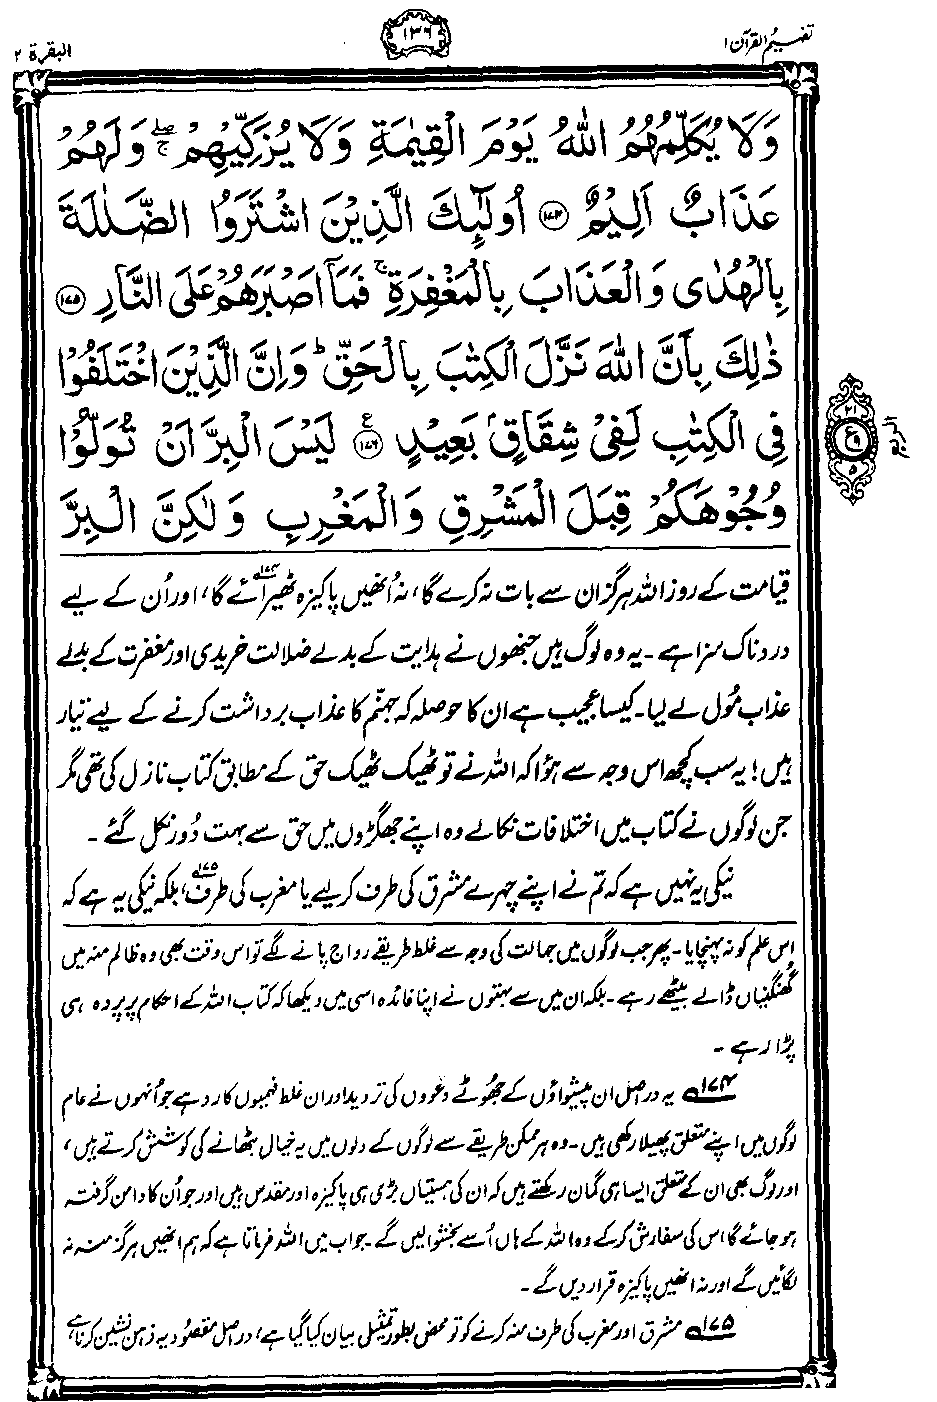 تفہیم القرآن ۱
۱۳۶
البقرة ۲
وَلَا يُكَلِّمُهُمُ اللّٰهُ يَوْمَ الْقِيٰمَةِ وَلَا يُزَكِّيْهِمْ ۚۖ وَلَهُمْ
عَذَابٌ اَلِيْمٌ ﴿۱۷۴﴾ اُولٰٓئِكَ الَّذِيْنَ اشْتَرَوُا الضَّلٰلَةَ
بِالْهُدٰى وَالْعَذَابَ بِالْمَغْفِرَةِ ۚ فَمَآ اَصْبَرَهُمْ عَلَى النَّارِ ﴿۱۷۵﴾
ذٰلِكَ بِاَنَّ اللّٰهَ نَزَّلَ الْكِتٰبَ بِالْحَقِّ ؕ وَاِنَّ الَّذِيْنَ اخْتَلَفُوْا
فِى الْكِتٰبِ لَفِىْ شِقَاقٍۭ بَعِيْدٍ ﴿۱۷۶﴾ ع لَيْسَ الْبِرَّ اَنْ تُوَلُّوْا
وُجُوْهَكُمْ قِبَلَ الْمَشْرِقِ وَالْمَغْرِبِ وَلٰكِنَّ الْبِرَّ
۲۱
ع ۹
۵
الربع
قیامت کے روز اللہ ہرگز ان سے بات نہ کرے گا، نہ اُنھیں پاکیزہ ٹھیرائے گا،۱۷۴ اور اُن کے لیے
دردناک سزا ہے۔ یہ وہ لوگ ہیں جنھوں نے ہدایت کے بدلے ضلالت خریدی اور مغفرت کے بدلے
عذاب مُول لے لیا۔ کیسا عجیب ہے ان کا حوصلہ کہ جہنّم کا عذاب برداشت کرنے کے لیے تیار
ہیں! یہ سب کچھ اس وجہ سے ہؤا کہ اللہ نے تو ٹھیک ٹھیک حق کے مطابق کتاب نازل کی تھی مگر
جن لوگوں نے کتاب میں اختلافات نکالے وہ اپنے جھگڑوں میں حق سے بہت دُور نکل گئے۔
نیکی یہ نہیں ہے کہ تم نے اپنے چہرے مشرق کی طرف کر لیے یا مغرب کی طرف،۱۷۵ بلکہ نیکی یہ ہے کہ
اِس علم کو نہ پہنچایا۔ پھر جب لوگوں میں جہالت کی وجہ سے غلط طریقے رواج پانے لگے تو اس وقت بھی وہ ظالم منہ میں
گھُنگنیاں ڈالے بیٹھے رہے۔ بلکہ ان میں سے بہتوں نے اپنا فائدہ اسی میں دیکھا کہ کتاب اللہ کے احکام پر پردہ ہی
پڑا رہے۔
۱۷۴ یہ دراصل ان پیشواؤں کے جھُوٹے دعووں کی تردید اور ان غلط فہمیوں کا رد ہے جو اُنہوں نے عام
لوگوں میں اپنے متعلق پھیلا رکھی ہیں۔ وہ ہر ممکن طریقے سے لوگوں کے دلوں میں یہ خیال بٹھانے کی کوشش کرتے ہیں،
اور لوگ بھی ان کے متعلق ایسا ہی گمان رکھتے ہیں کہ ان کی ہستیاں بڑی ہی پاکیزہ اور مقدس ہیں اور جو اُن کا دامن گرفتہ
ہو جائے گا اس کی سفارش کر کے وہ اللہ کے ہاں اُسے بخشوا لیں گے۔ جواب میں اللہ فرماتا ہے کہ ہم انھیں ہرگز منہ نہ
لگائیں گے اور نہ انھیں پاکیزہ قرار دیں گے۔
۱۷۵ مشرق اور مغرب کی طرف منہ کرنے کو تو محض بطور تمثیل بیان کیا گیا ہے، دراصل مقصُود یہ ذہن نشین کرنا ہے